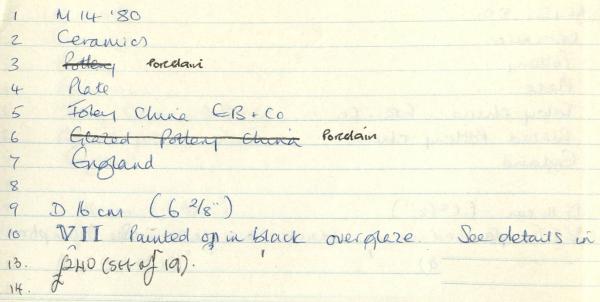 1 M 14 '80
2 Ceramics
3 Pottery Porcelain
4 Plate
5 Foley China EB + Co
6 Glazed Pottery China Porcelain
7 England
8
9 D 16 cm (6 2/8")
10 VII Painted on in black overglaze. See details in
13. p240 (SH of 19).
14.